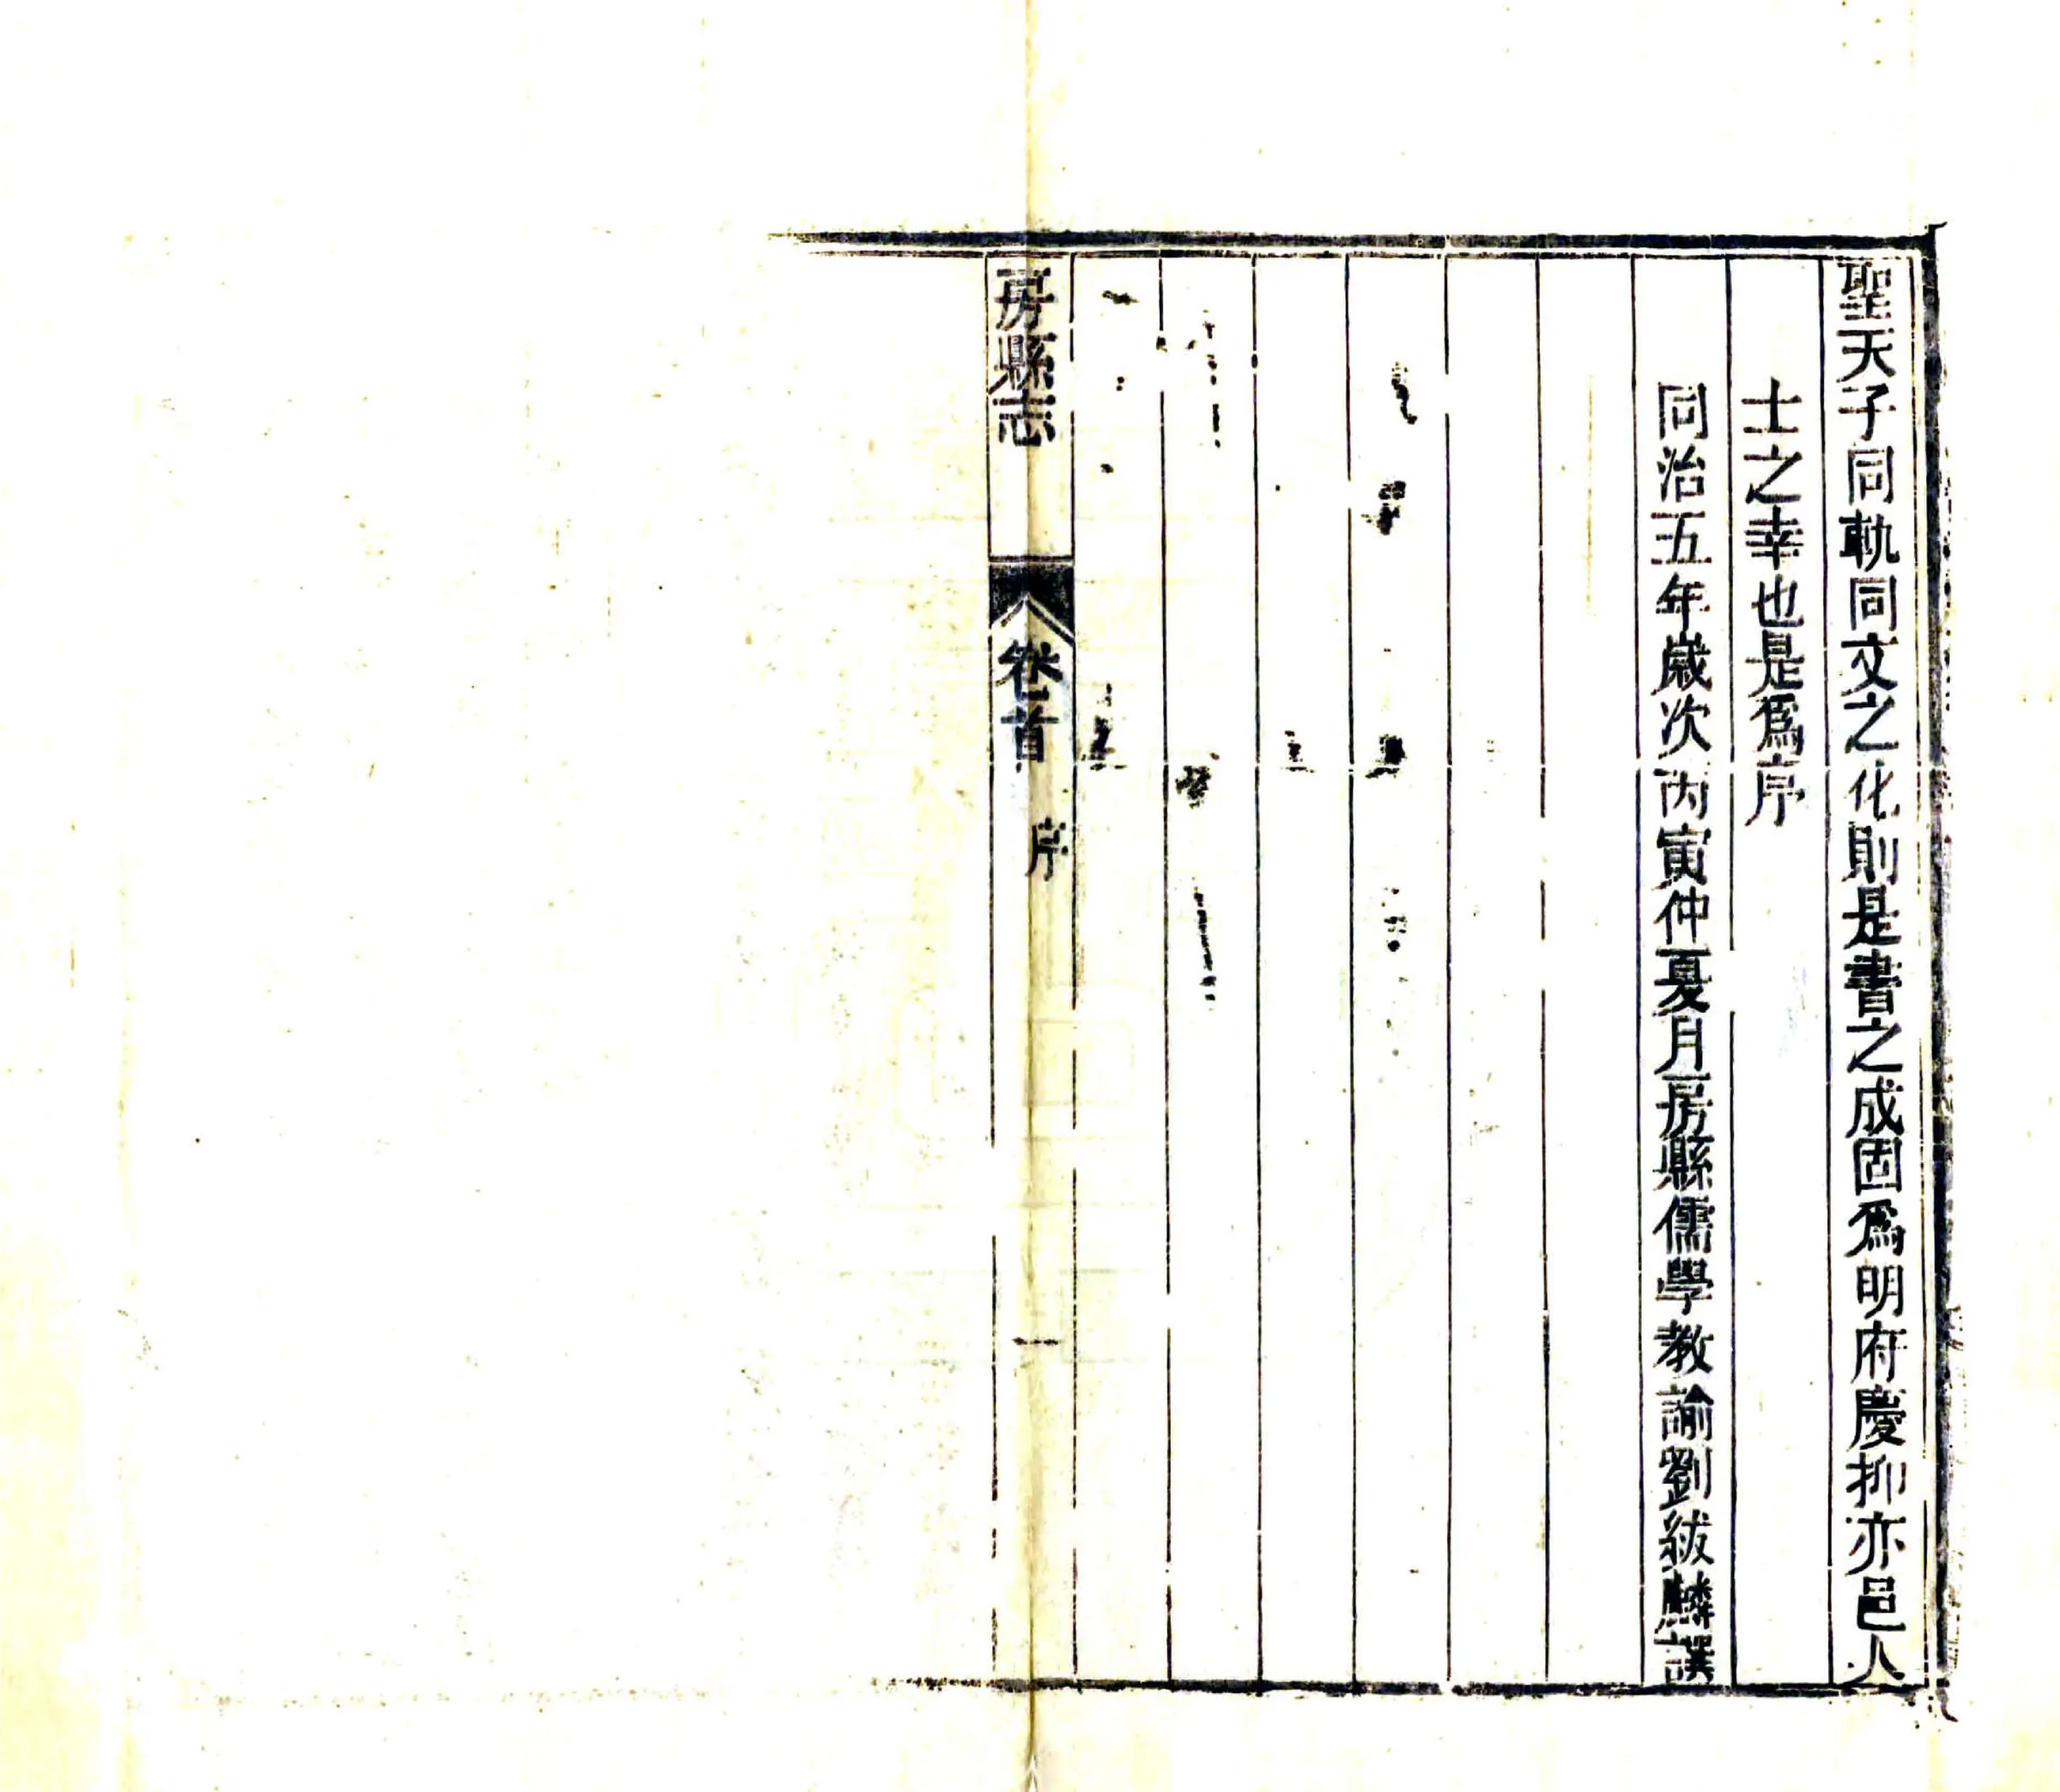 聖天子同軌同文之化則是書之成固爲明府慶抑亦邑人
士之幸也是爲序
同治五年歲次丙寅仲夏月房縣儒學教諭劉紱麟譔
房縣志 卷首 序 一